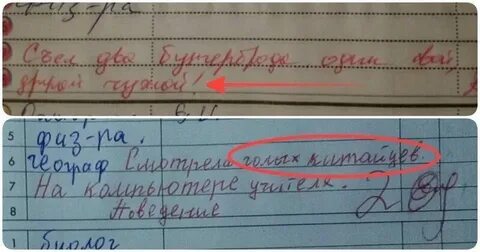 физ-ра
Съел два бутерброда один свой,
другой чужой!
5 физ-ра.
6 географ Смотрела голых китайцев.
7 На компьютере учителя.
8 Поведение 2
1 биолог